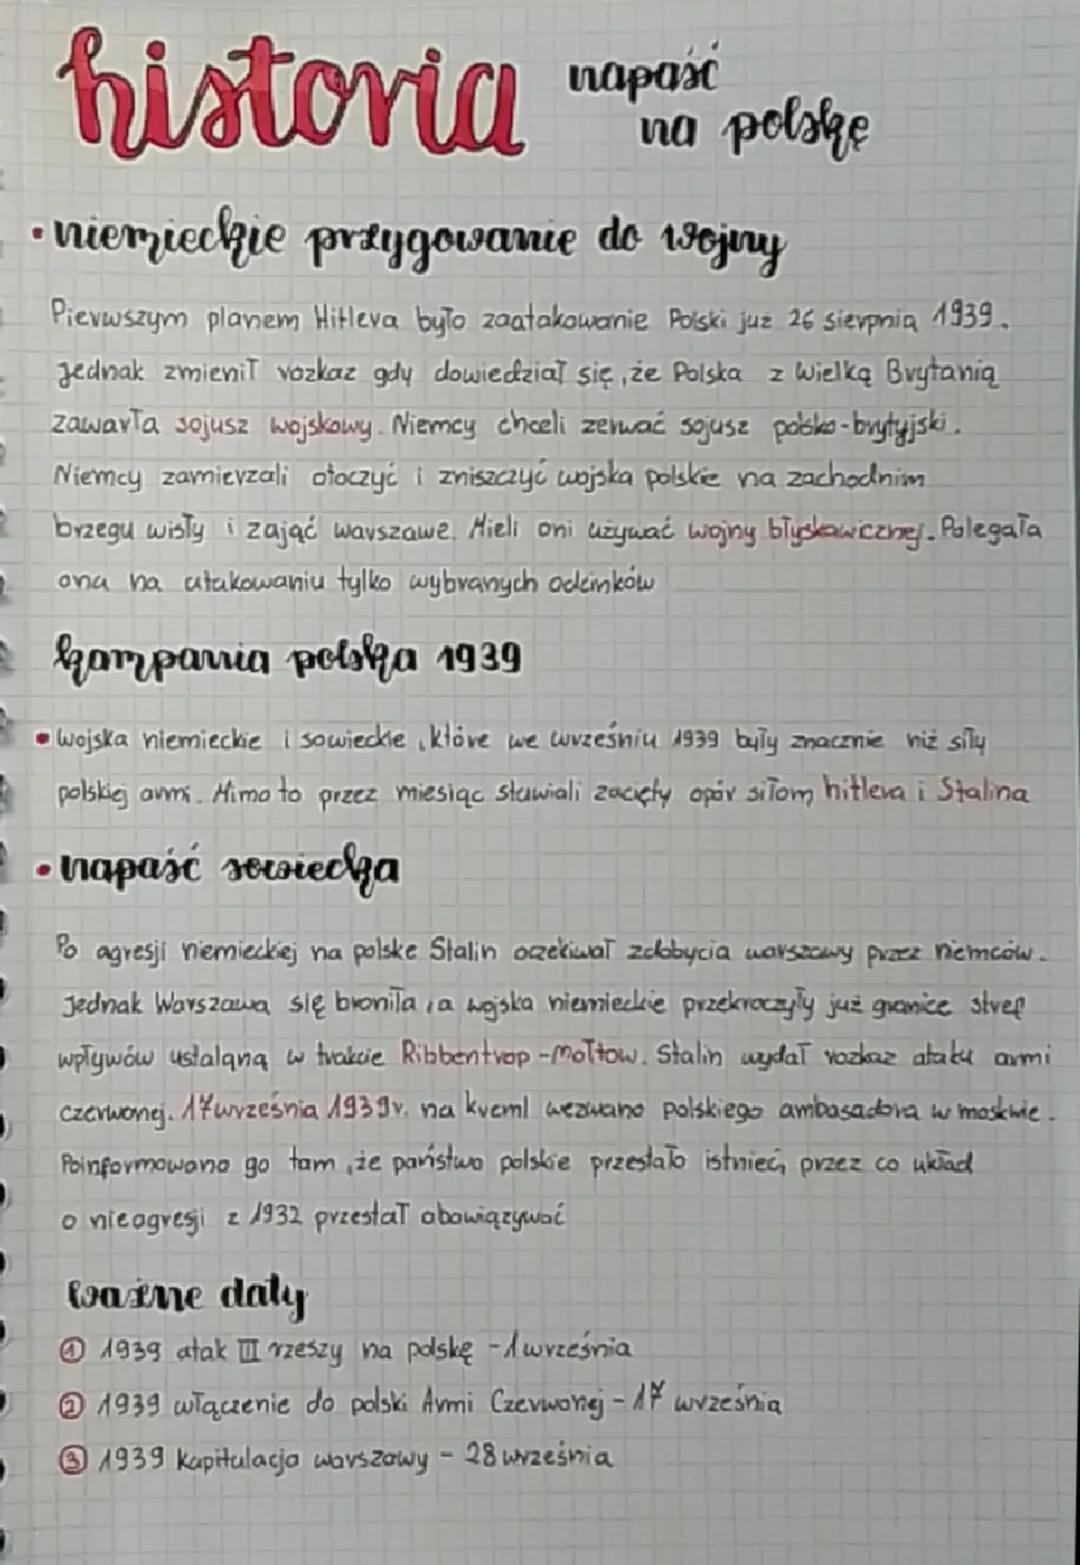 historia napaść
na polskę
• niemieckie przygowanie do wojny
Pierwszym planem Hitlera było zaatakowanie Polski już 26 sierpnia 1939.
Jednak zmienił rozkaz gdy dowiedział się, że Polska z Wielką Brytanią
zawarła sojusz wojskowy. Niemcy chceli zerwać sojusz polsko-brytyjski.
Niemcy zamierzali otoczyć i zniszczyć wojska polskie na zachodnim
brzegu wisły i zająć warszawe. Mieli oni używać wojny błyskawicznej. Polegała
ona na atakowaniu tylko wybranych odcinków
kampania polska 1939
• wojska niemieckie i sowieckie, które we wrześniu 1939 były znacznie niż siły
polskiej armi. Mimo to przez miesiąc stawiali zacięty opór siłom hitlera i Stalina
• napaść sowiecka
Po agresji niemieckiej na polske Stalin oczekiwał zdobycia warszawy przez niemców.
Jednak Warszawa się broniła, a wojska niemieckie przekroczyły już granice stref
wpływów ustaloną w trakcie Ribbentrop-Mołtow. Stalin wydał rozkaz ataku armi
czerwonej. 17 września 1939r. na kreml wezwano polskiego ambasadora w moskwie.
Poinformowano go tam, że państwo polskie przestało istnieć, przez co układ
o nieagresji z 1932 przestał obowiązywać
ważne daty
① 1939 atak III rzeszy na polskę - 1 września
② 1939 włączenie do polski Armi Czerwonej - 17 września
③ 1939 kapitulacja warszawy - 28 września